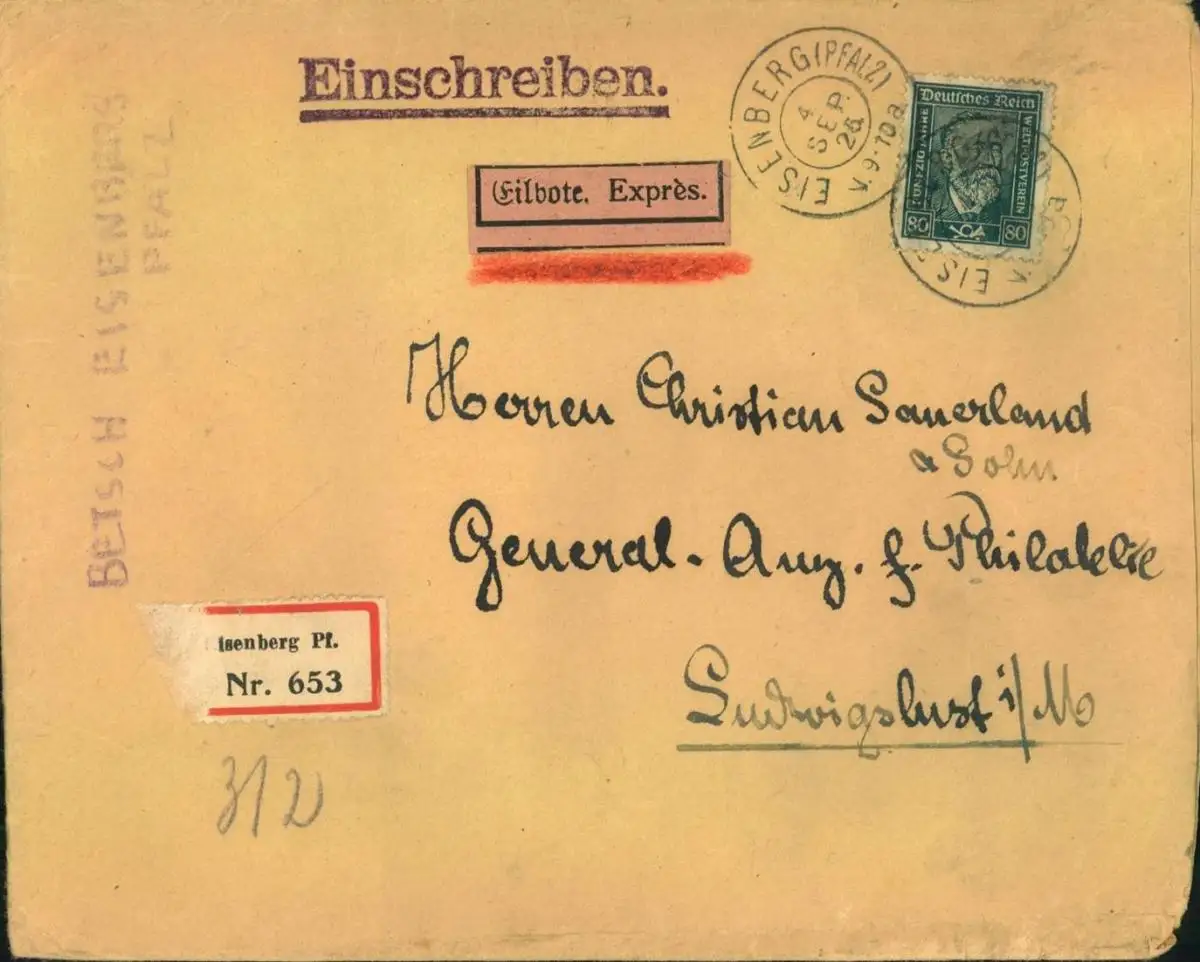 Einschreiben.
EISENBERG (PFALZ)
4
SEP.
26
K 9-10a
Deutsches Reich
FÜNFZIG JAHRE
WELTPOSTVEREIN
80 80
K EIS
Eilbote. Exprès.
BETSCH EISENBERG
PFALZ
Herren Christian Sauerland
& Sohn
General-Anz. f. Philatelie
Ludwigslust i/M
isenberg Pf.
Nr. 653
312